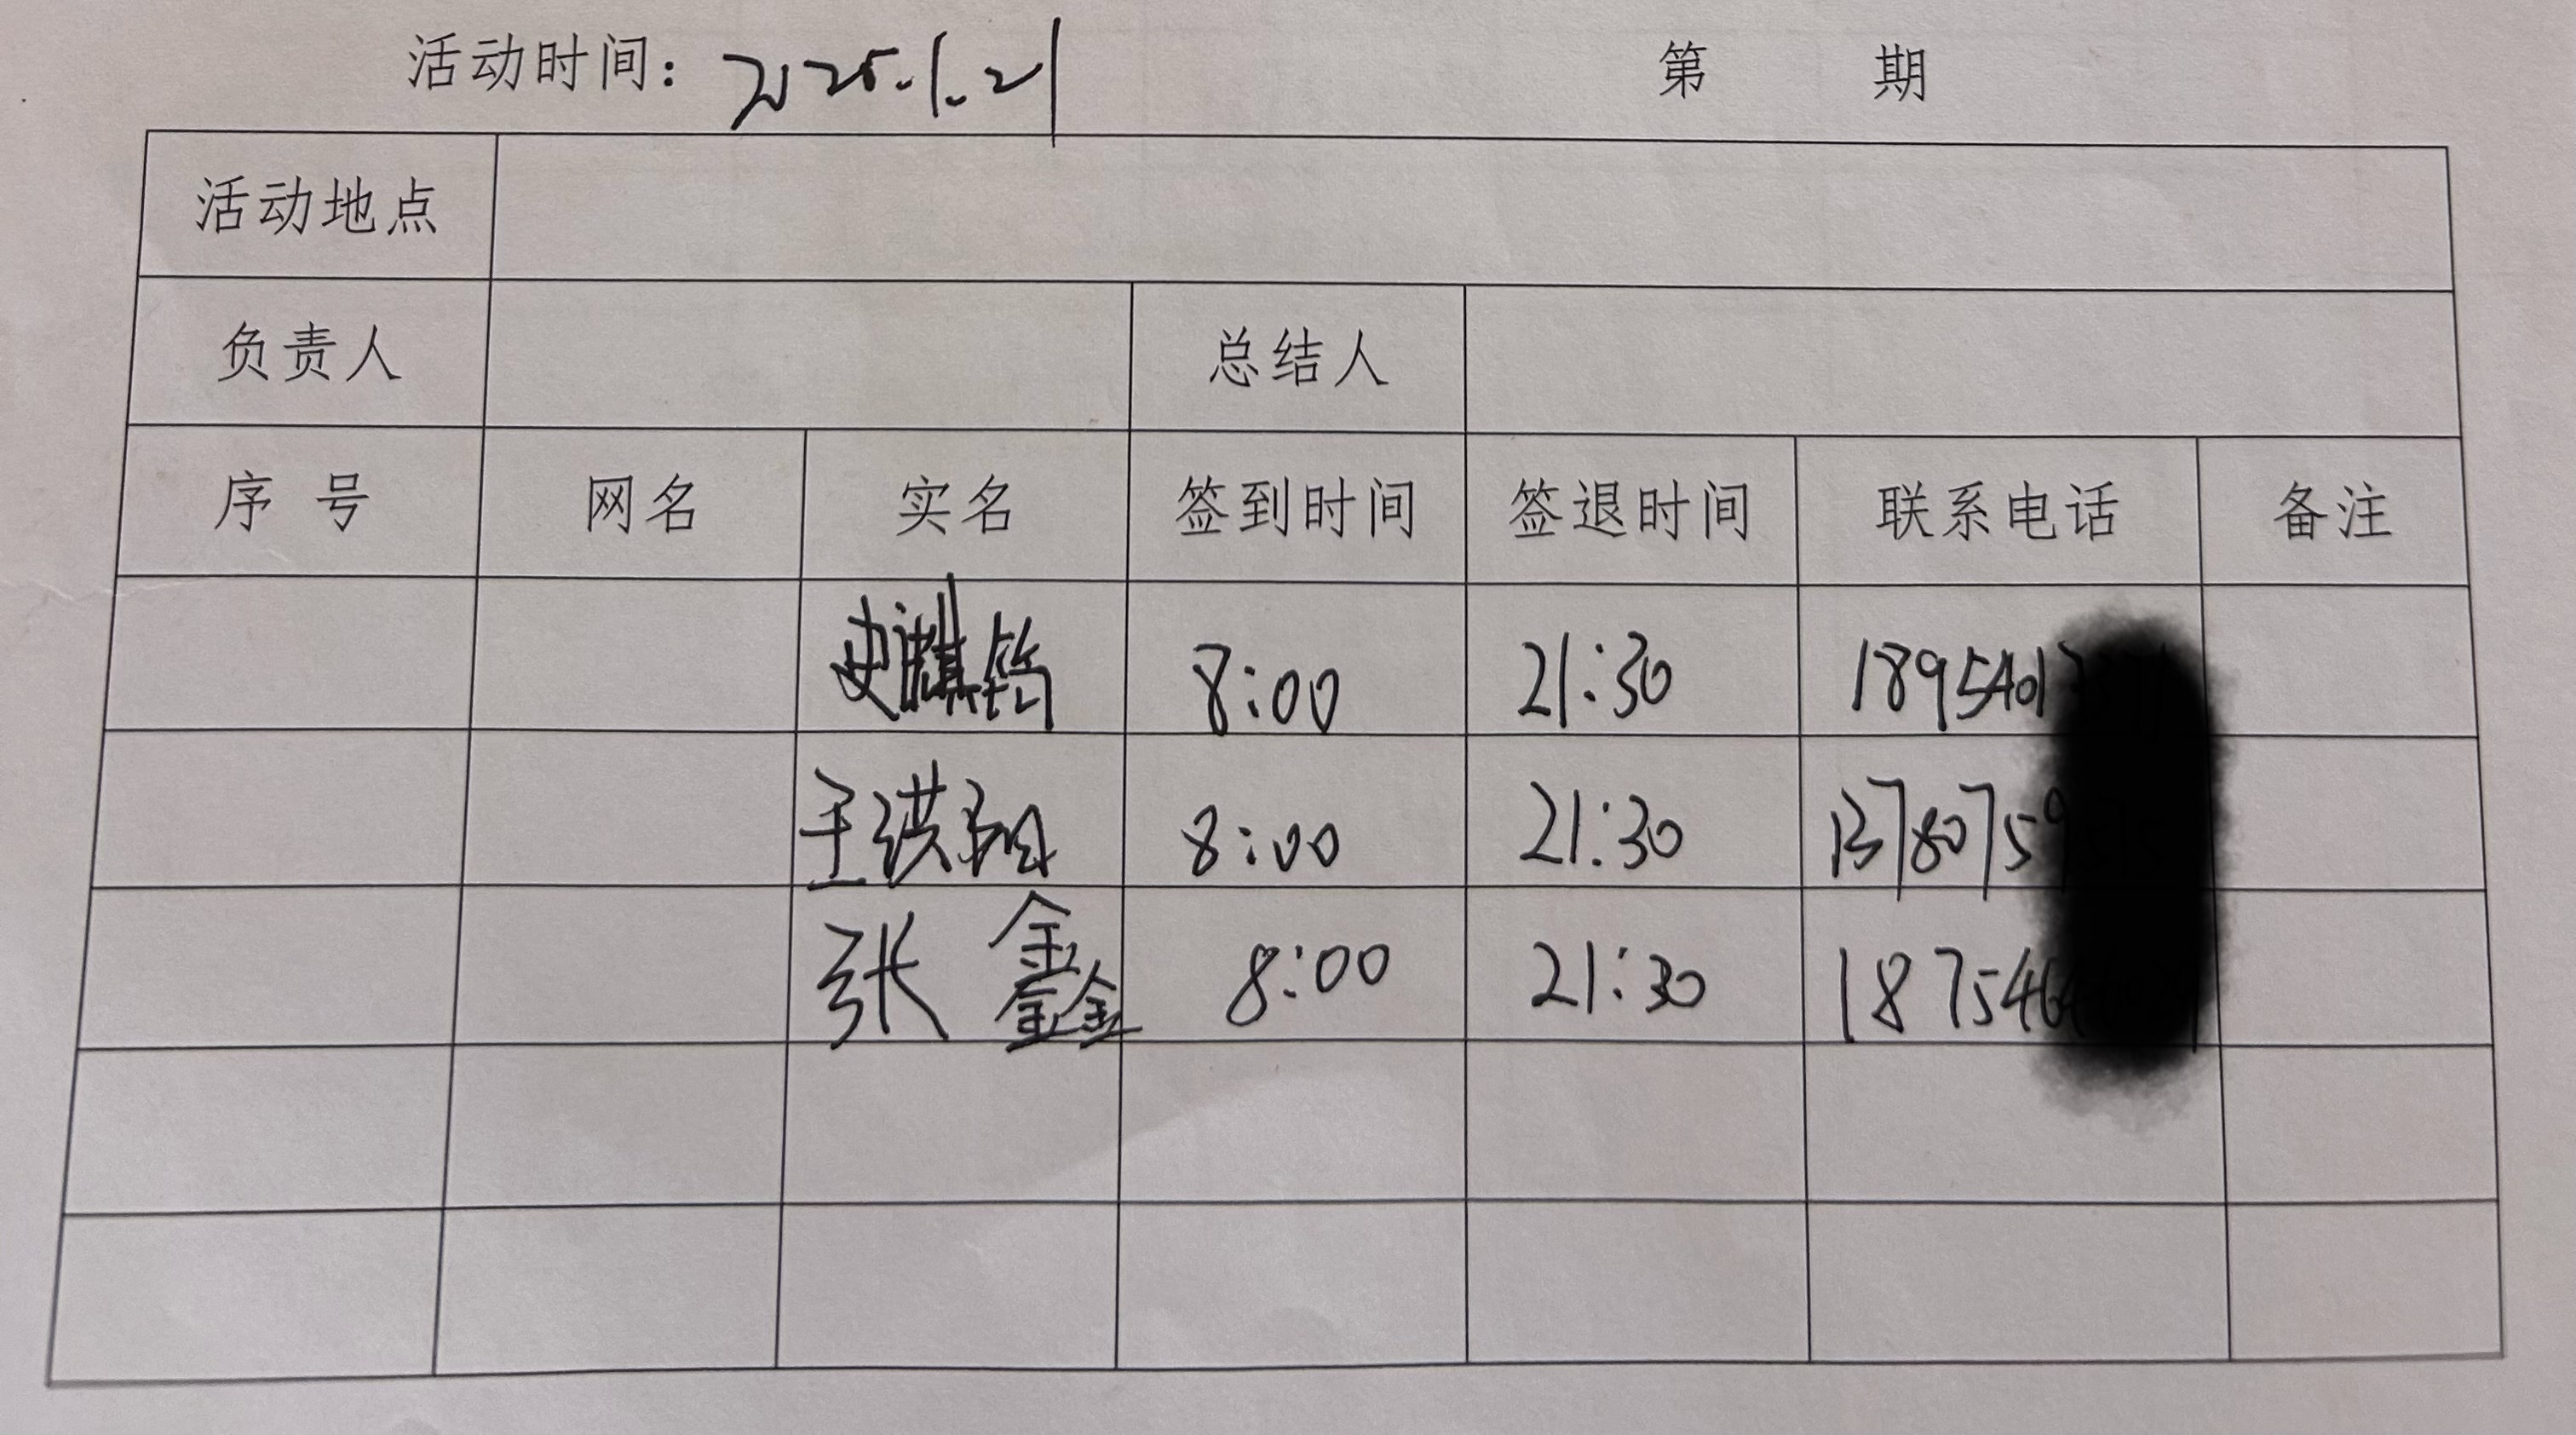 活动时间：2025.1.21 第 期
活动地点
负责人 总结人
序 号 网名 实名 签到时间 签退时间 联系电话 备注
史 8:00 21:30 1895401
王洪翔 8:00 21:30 1378075
张鑫 8:00 21:30 187546